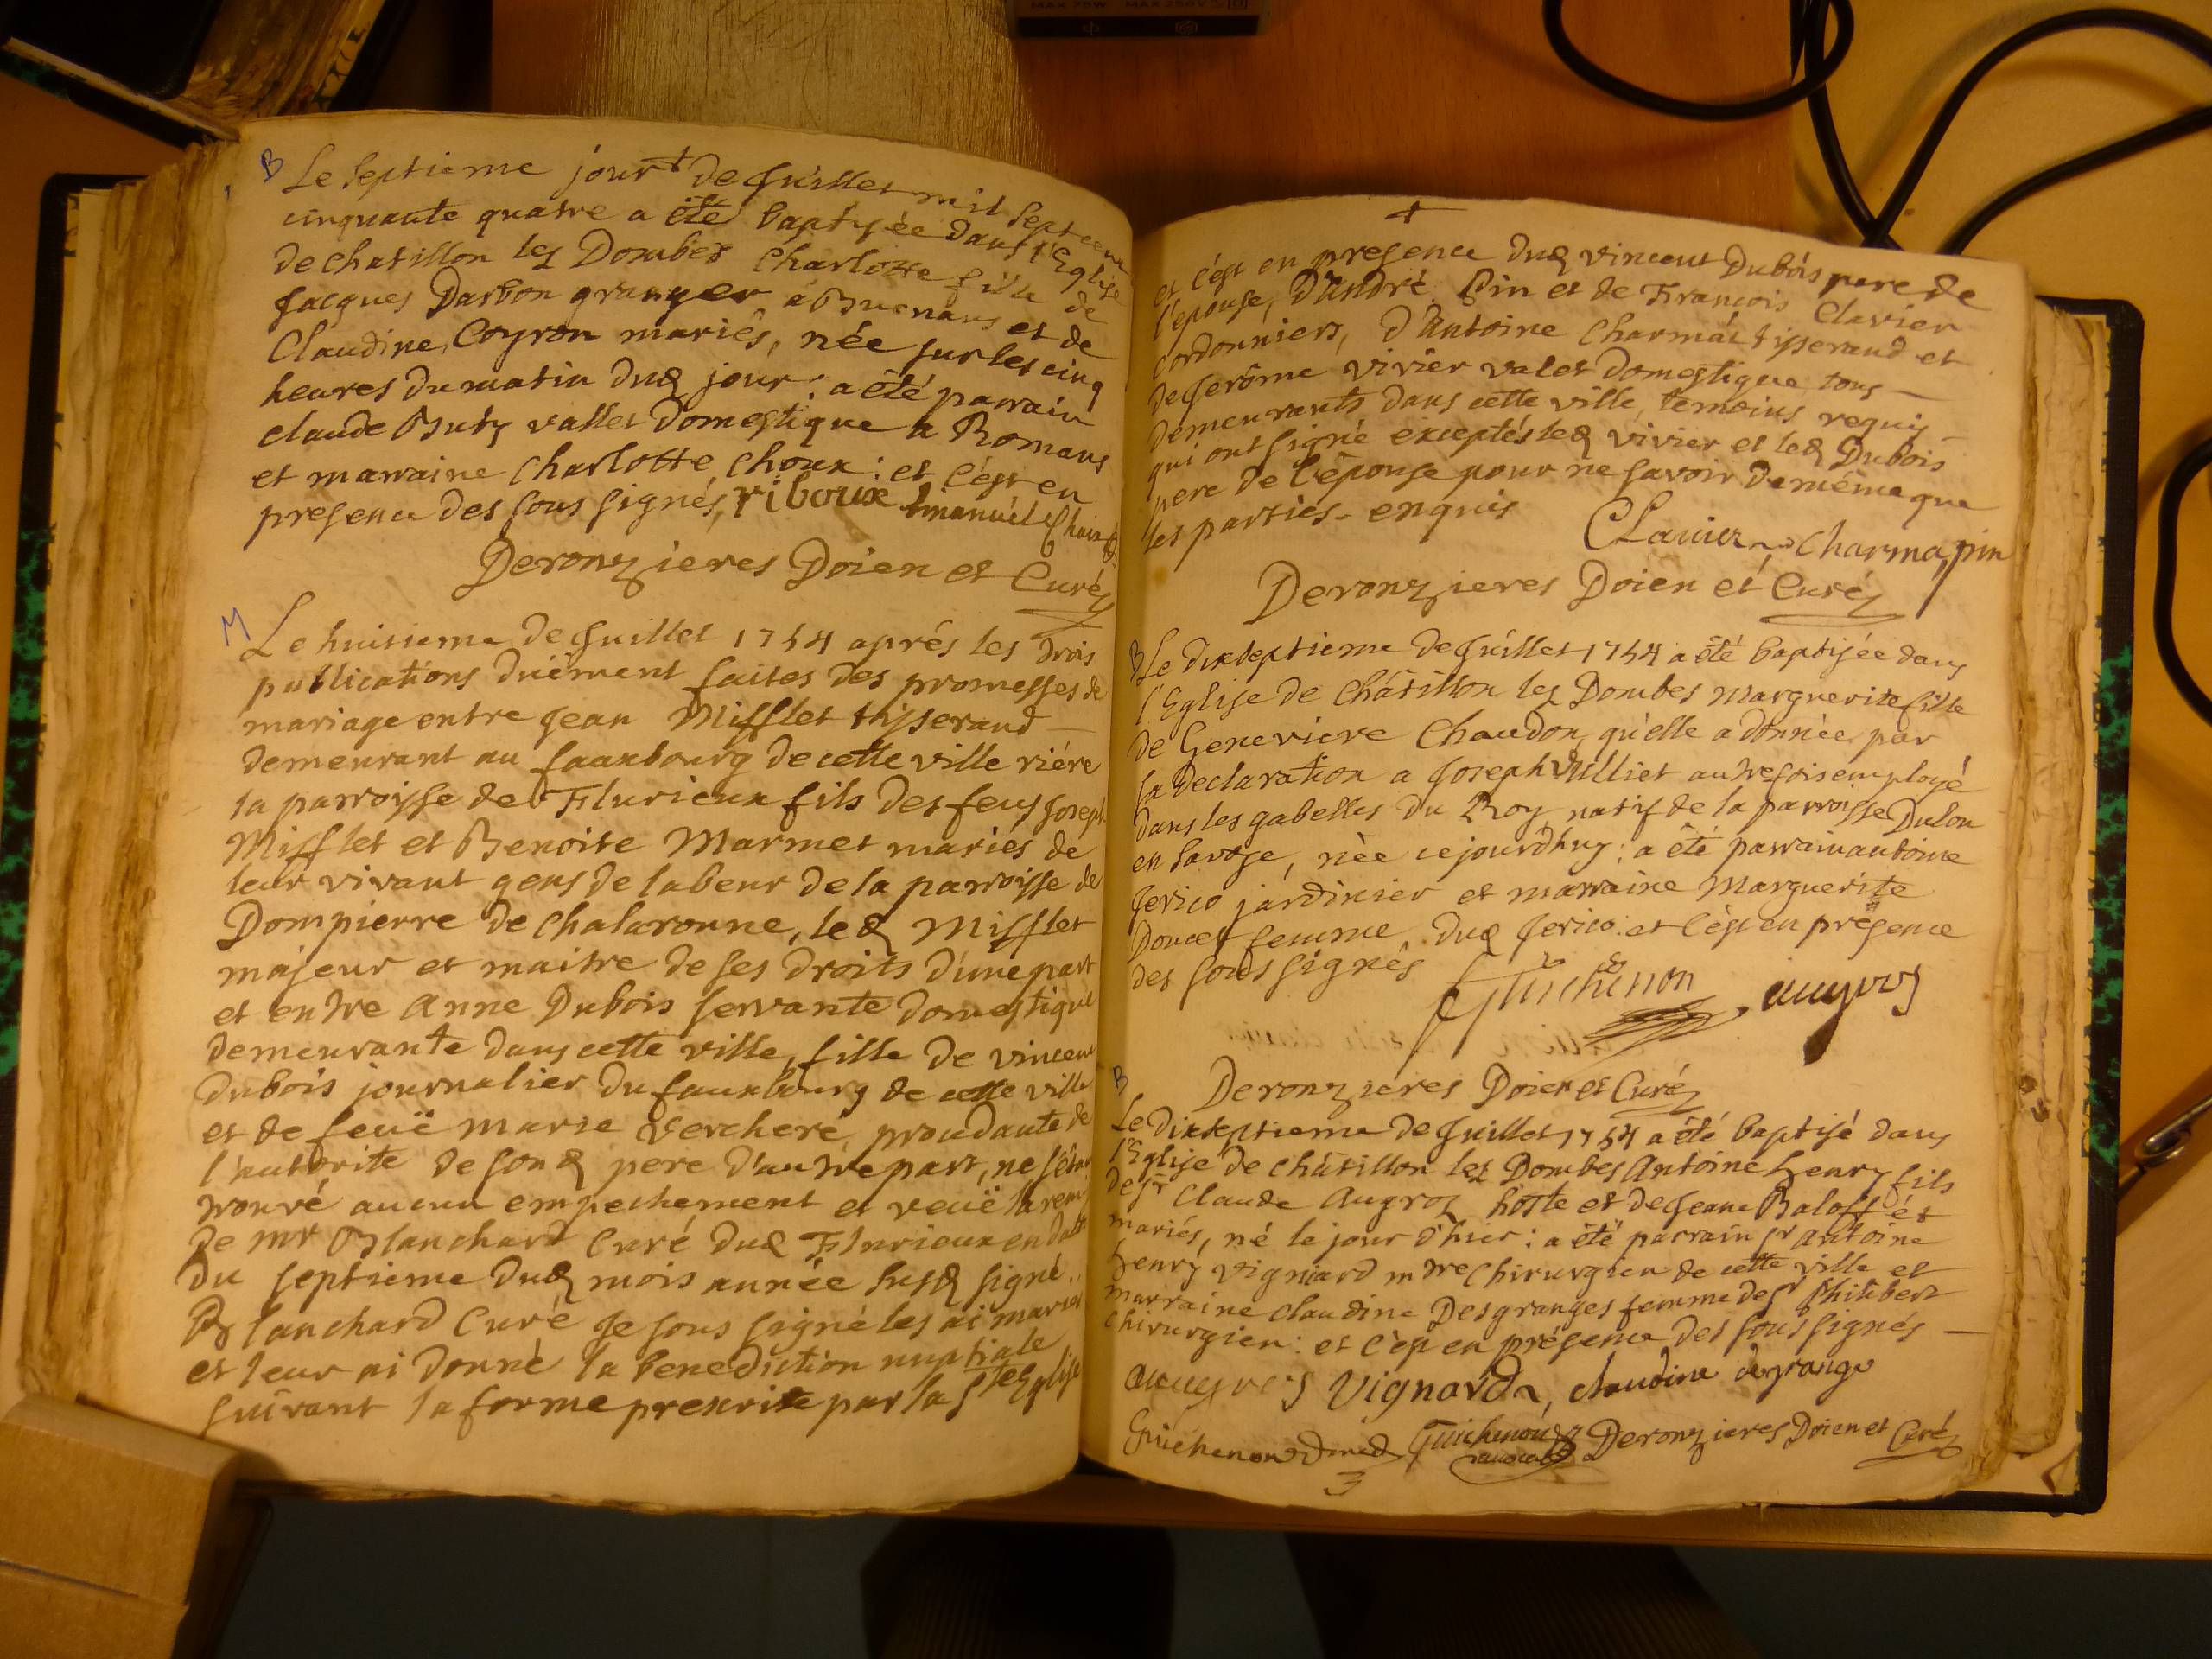 MAX 75W MAX 250V
B Le septieme jour de Juillet mil sept cent
cinquante quatre a été baptisée dans l'Eglise
de chatillon les Dombes Charlotte fille de
Jacques Darbon granger a Buenans et de
Claudine Coyron mariés, née sur les cinq
heures du matin dud jour : a été parrain
claude Buty vallet domestique a Romans
et marraine Charlotte Choux : et c'est en
presence des sous signés, riboux Emanuël
Deronzieres Doien et Curé
M Le huitieme de Juillet 1754 aprés les trois
publications düement faites des promesses de
mariage entre Jean Mifflet tisserand
demeurant au fauxbourg de cette ville riére
la parroisse de Flurieux fils des feus Joseph
Mifflet et Benoite Marmet mariés de
leur vivant gens de labeur de la parroisse de
Dompierre de Chalaronne, led Mifflet
majeur et maitre de ses droits d'une part
et entre Anne Dubois servante domestique
demeurante dans cette ville, fille de vincent
Dubois journalier du fauxbourg de cette ville
et de feuë marie Verchere, procedante de
l'autorité de sond pere d'autre part, ne s'étant
trouvé aucun empechement et veuë la remise
de mr Blanchard Curé dud Flurieux en datte
du septieme dud mois année susd signé
Blanchard Curé Je sous signé les ai mariés
et leur ai donné la benediction nuptiale
suivant la forme prescrite par la Ste Eglise
et c'est en presence dud vincent Dubois pere de
l'epouse, D'André Pin et de François Clavier
cordonniers, d'Antoine Charmat tisserand et
de Jerôme vivier valet domestique tous
demeurants dans cette ville, temoins requis
qui ont signé exceptés led vivier et led Dubois
pere de l'épouse pour ne savoir de même que
les parties enquis
Clavier charma pin
Deronzieres Doien et Curé
B Le dixseptieme de Juillet 1754 a été baptisée dans
l'Eglise de Châtillon les Dombes Marguerite fille
de Genevieve Chaudon, qu'elle a donnée par
sa declaration a Joseph Villiet autrefois employé
dans les gabelles du Roy, natif de la parroisse Dulon
en Savoye, née cejourdhuy : a été parrain antoine
Jerico jardinier et marraine Marguerite
Doucet femme dud Jerico : et c'est en présence
des sous signés
Guichenon augros
Deronzieres Doien et Curé
B Le Dixseptieme de Juillet 1754 a été baptisé dans
l'Eglise de Châtillon les Dombes Antoine henry fils
de sr Claude Augros hôste et de Jeane Baloffet
mariés, né le jour d'hier : a été parrain sr antoine
henry vigniard mtre Chirurgien de cette ville et
marraine claudine Desgranges femme de sr Philibert
chirurgien : et c'est en présence des sous signés
augros Vignard, claudine degrange
Guichenon Guichenon Deronzieres Doien et Curé